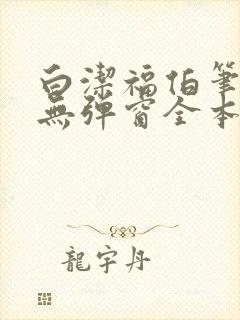 白潔福伯筆
無彈窗全本
龍宇丹